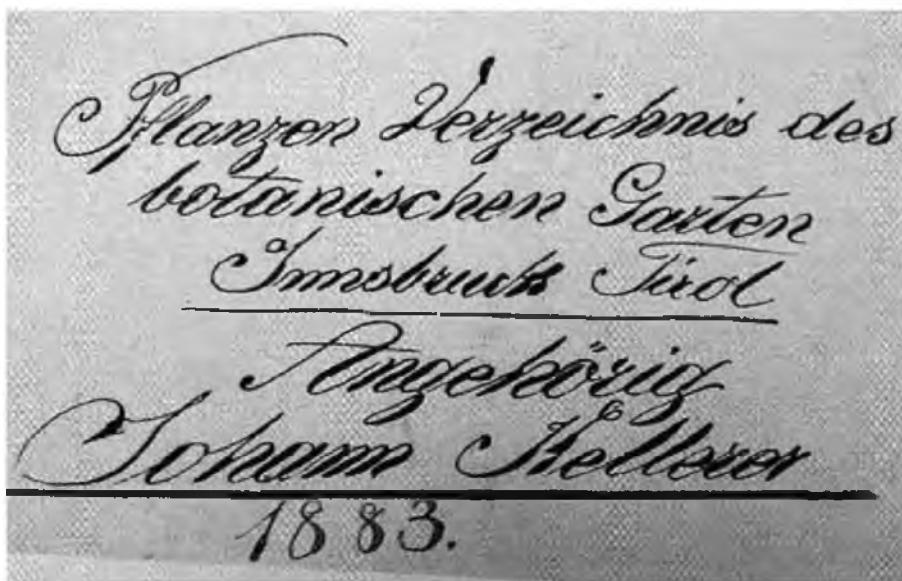 Pflanzen Verzeichnis des
botanischen Garten
Innsbruck Tirol
Angehörig
Johann Kellerer
1883.